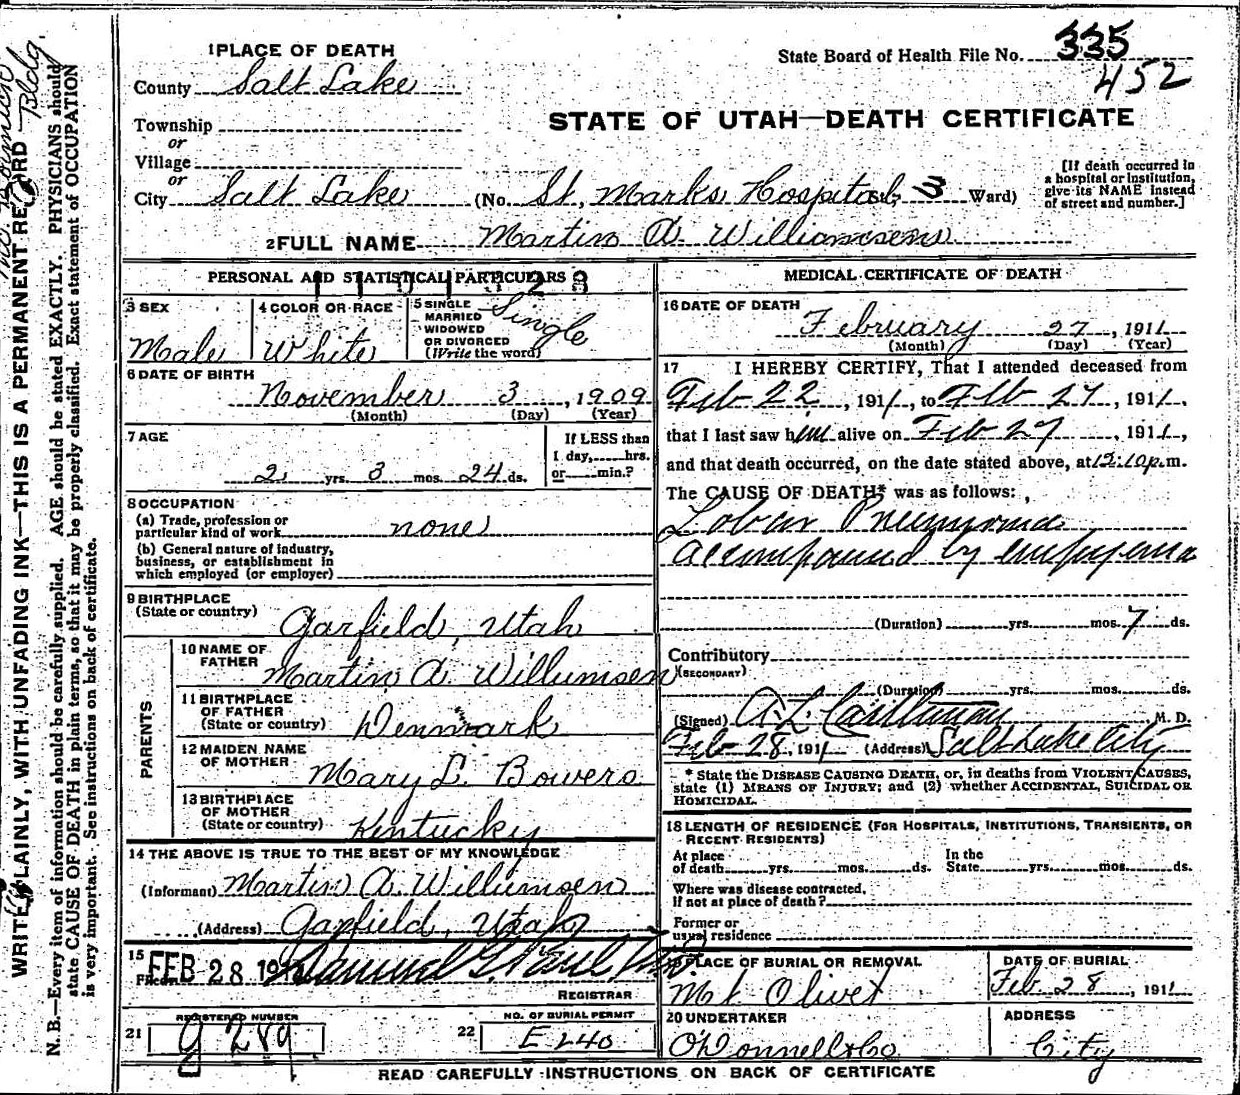 1 PLACE OF DEATH
State Board of Health File No. 335
452
County Salt Lake
STATE OF UTAH—DEATH CERTIFICATE
Township
or
Village
or
City Salt Lake (No. St. Marks Hospital St; 3 Ward)
[If death occurred in a hospital or institution, give its NAME instead of street and number.]
2 FULL NAME Martin A. Williamsen
PERSONAL AND STATISTICAL PARTICULARS
3 SEX
Male
4 COLOR OR RACE
White
5 SINGLE
MARRIED
WIDOWED
OR DIVORCED
(Write the word)
Single
6 DATE OF BIRTH
November 3, 1909
(Month) (Day) (Year)
7 AGE
2 yrs. 3 mos. 24 ds.
If LESS than
1 day, hrs.
or min.?
8 OCCUPATION
(a) Trade, profession or
particular kind of work none
(b) General nature of industry,
business, or establishment in
which employed (or employer)
9 BIRTHPLACE
(State or country) Garfield, Utah
PARENTS
10 NAME OF
FATHER Martin A. Willumsen
11 BIRTHPLACE
OF FATHER
(State or country) Denmark
12 MAIDEN NAME
OF MOTHER Mary L. Bowers
13 BIRTHPLACE
OF MOTHER
(State or country) Kentucky
14 THE ABOVE IS TRUE TO THE BEST OF MY KNOWLEDGE
(Informant) Martin A. Willumsen
(Address) Garfield, Utah
15
FEB 28 191
REGISTRAR
21 REGISTERED NUMBER
289
22 NO. OF BURIAL PERMIT
E 240
MEDICAL CERTIFICATE OF DEATH
16 DATE OF DEATH
February 27, 1911
(Month) (Day) (Year)
17 I HEREBY CERTIFY, That I attended deceased from
Feb 22, 1911, to Feb 27, 1911,
that I last saw him alive on Feb 27, 1911,
and that death occurred, on the date stated above, at 12:10 p.m.
The CAUSE OF DEATH* was as follows:
Lobar Pneumonia
accompanied by empyema
(Duration) yrs. mos. 7 ds.
Contributory
(SECONDARY)
(Duration) yrs. mos. ds.
(Signed) M. D.
Feb 28, 1911 (Address) Salt Lake City
* State the DISEASE CAUSING DEATH, or, in deaths from VIOLENT CAUSES,
state (1) MEANS OF INJURY; and (2) whether ACCIDENTAL, SUICIDAL OR
HOMICIDAL.
18 LENGTH OF RESIDENCE (FOR HOSPITALS, INSTITUTIONS, TRANSIENTS, OR
RECENT RESIDENTS)
At place
of death yrs. mos. ds.
In the
State yrs. mos. ds.
Where was disease contracted,
if not at place of death?
Former or
usual residence
19 PLACE OF BURIAL OR REMOVAL
Mt Olivet
DATE OF BURIAL
Feb. 28, 1911
20 UNDERTAKER
O'Donnell & Co
ADDRESS
City
READ CAREFULLY INSTRUCTIONS ON BACK OF CERTIFICATE
Bldg.
WRITE PLAINLY, WITH UNFADING INK—THIS IS A PERMANENT RECORD
N. B.—Every item of information should be carefully supplied. AGE should be stated EXACTLY. PHYSICIANS should
state CAUSE OF DEATH in plain terms, so that it may be properly classified. Exact statement of OCCUPATION
is very important. See instructions on back of certificate.